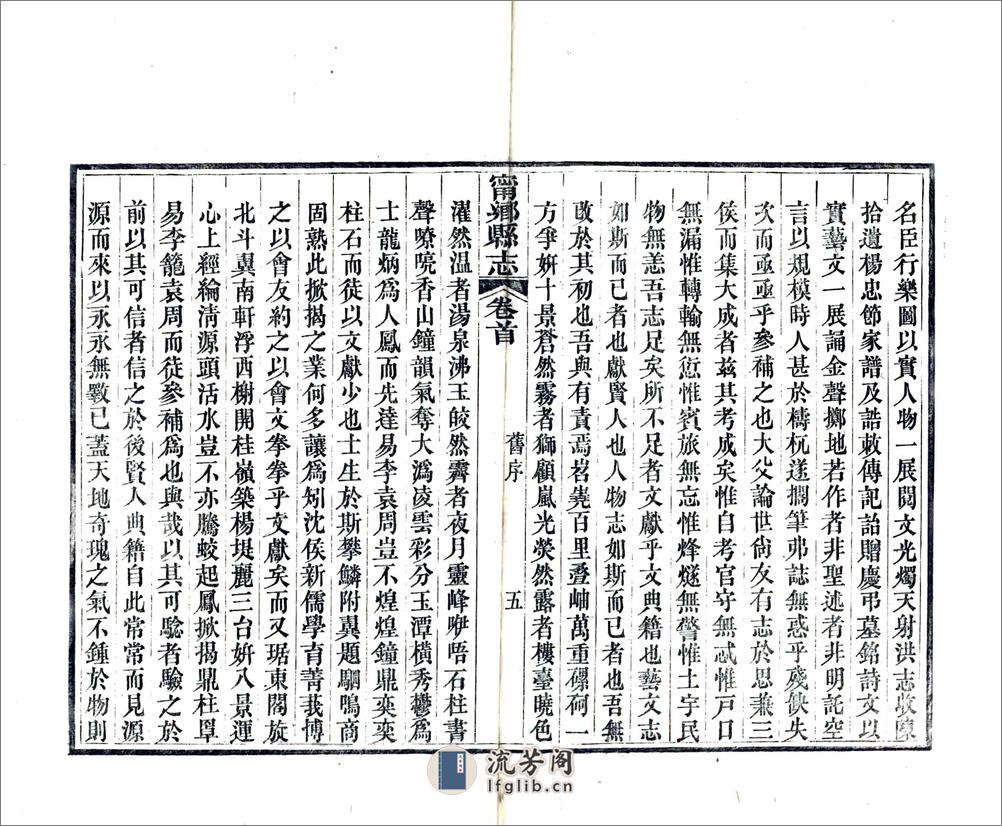 名臣行樂圖以實人物一展閱文光燭天射洪志收陳
拾遺楊忠節家譜及誥敕傳記詒贈慶弔墓銘詩文以
實藝文一展誦金聲擲地若作者非聖述者非明託空
言以規模時人甚於檮杌遂擱筆弗誌無惑乎殘缺失
次而亟亟乎參補之也大父論世尙友有志於思兼三
侯而集大成者茲其考成矣惟自考官守無忒惟戸口
無漏惟轉輸無愆惟賓旅無忘惟烽燧無警惟土宇民
物無恙吾志足矣所不足者文獻乎文典籍也藝文志
如斯而已者也獻賢人也人物志如斯而已者也吾無
改於其初也吾與有責焉岧蕘百里疊岫萬重磥砢一
方爭姸十景蒼然霧者獅顧嵐光熒然露者樓臺曉色
甯鄉縣志
卷首
舊序
五
濯然温者湯泉沸玉皎然霽者夜月靈峰咿唔石柱書
聲嘹喨香山鐘韻氣奪大潙凌雲彩分玉潭橫秀鬱爲
士龍炳爲人鳳而先逹易李袁周豈不煌煌鐘鼎奕奕
柱石而徒以文獻少也士生於斯攀鱗附翼題駟鳴商
固熟此掀揭之業何多讓爲矧沈侯新儒學育菁莪博
之以會友約之以會文拳拳乎文獻矣而又琚東閣旋
北斗翼南軒浮西榭開桂嶺築楊堤麗三台姸八景運
心上經綸淸源頭活水豈不亦騰蛟起鳳掀揭鼎柱罩
易李籠袁周而徒參補爲也與哉以其可騐者驗之於
前以其可信者信之於後賢人典籍自此常常而見源
源而來以永永無斁已蓋天地奇瑰之氣不鍾於物則
流芳阁
lfglib.cn